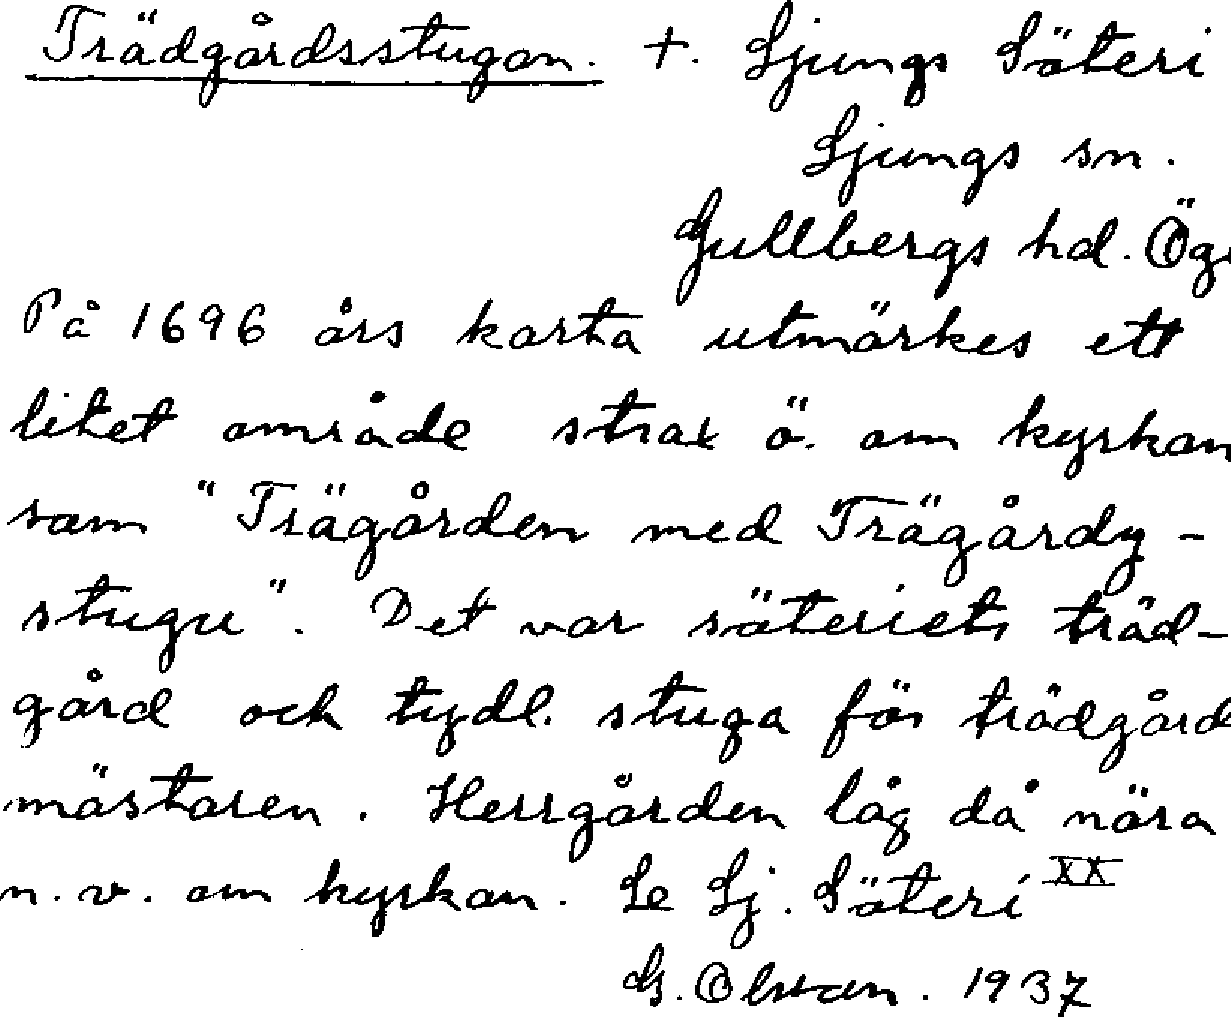 Trädgårdsstugan. +. Ljungs Säteri
Ljungs sn.
Gullbergs hd. Ög
På 1696 års karta utmärkes ett
litet område strax ö. om kyrkan
som "Trägården med Trägårdz-
stugu". Det var säteriets träd-
gård och tydl. stuga för trädgård
mästaren. Herrgården låg då nära
n.v. om kyrkan. Se Lj. Säteri XX
G. Olsson. 1937